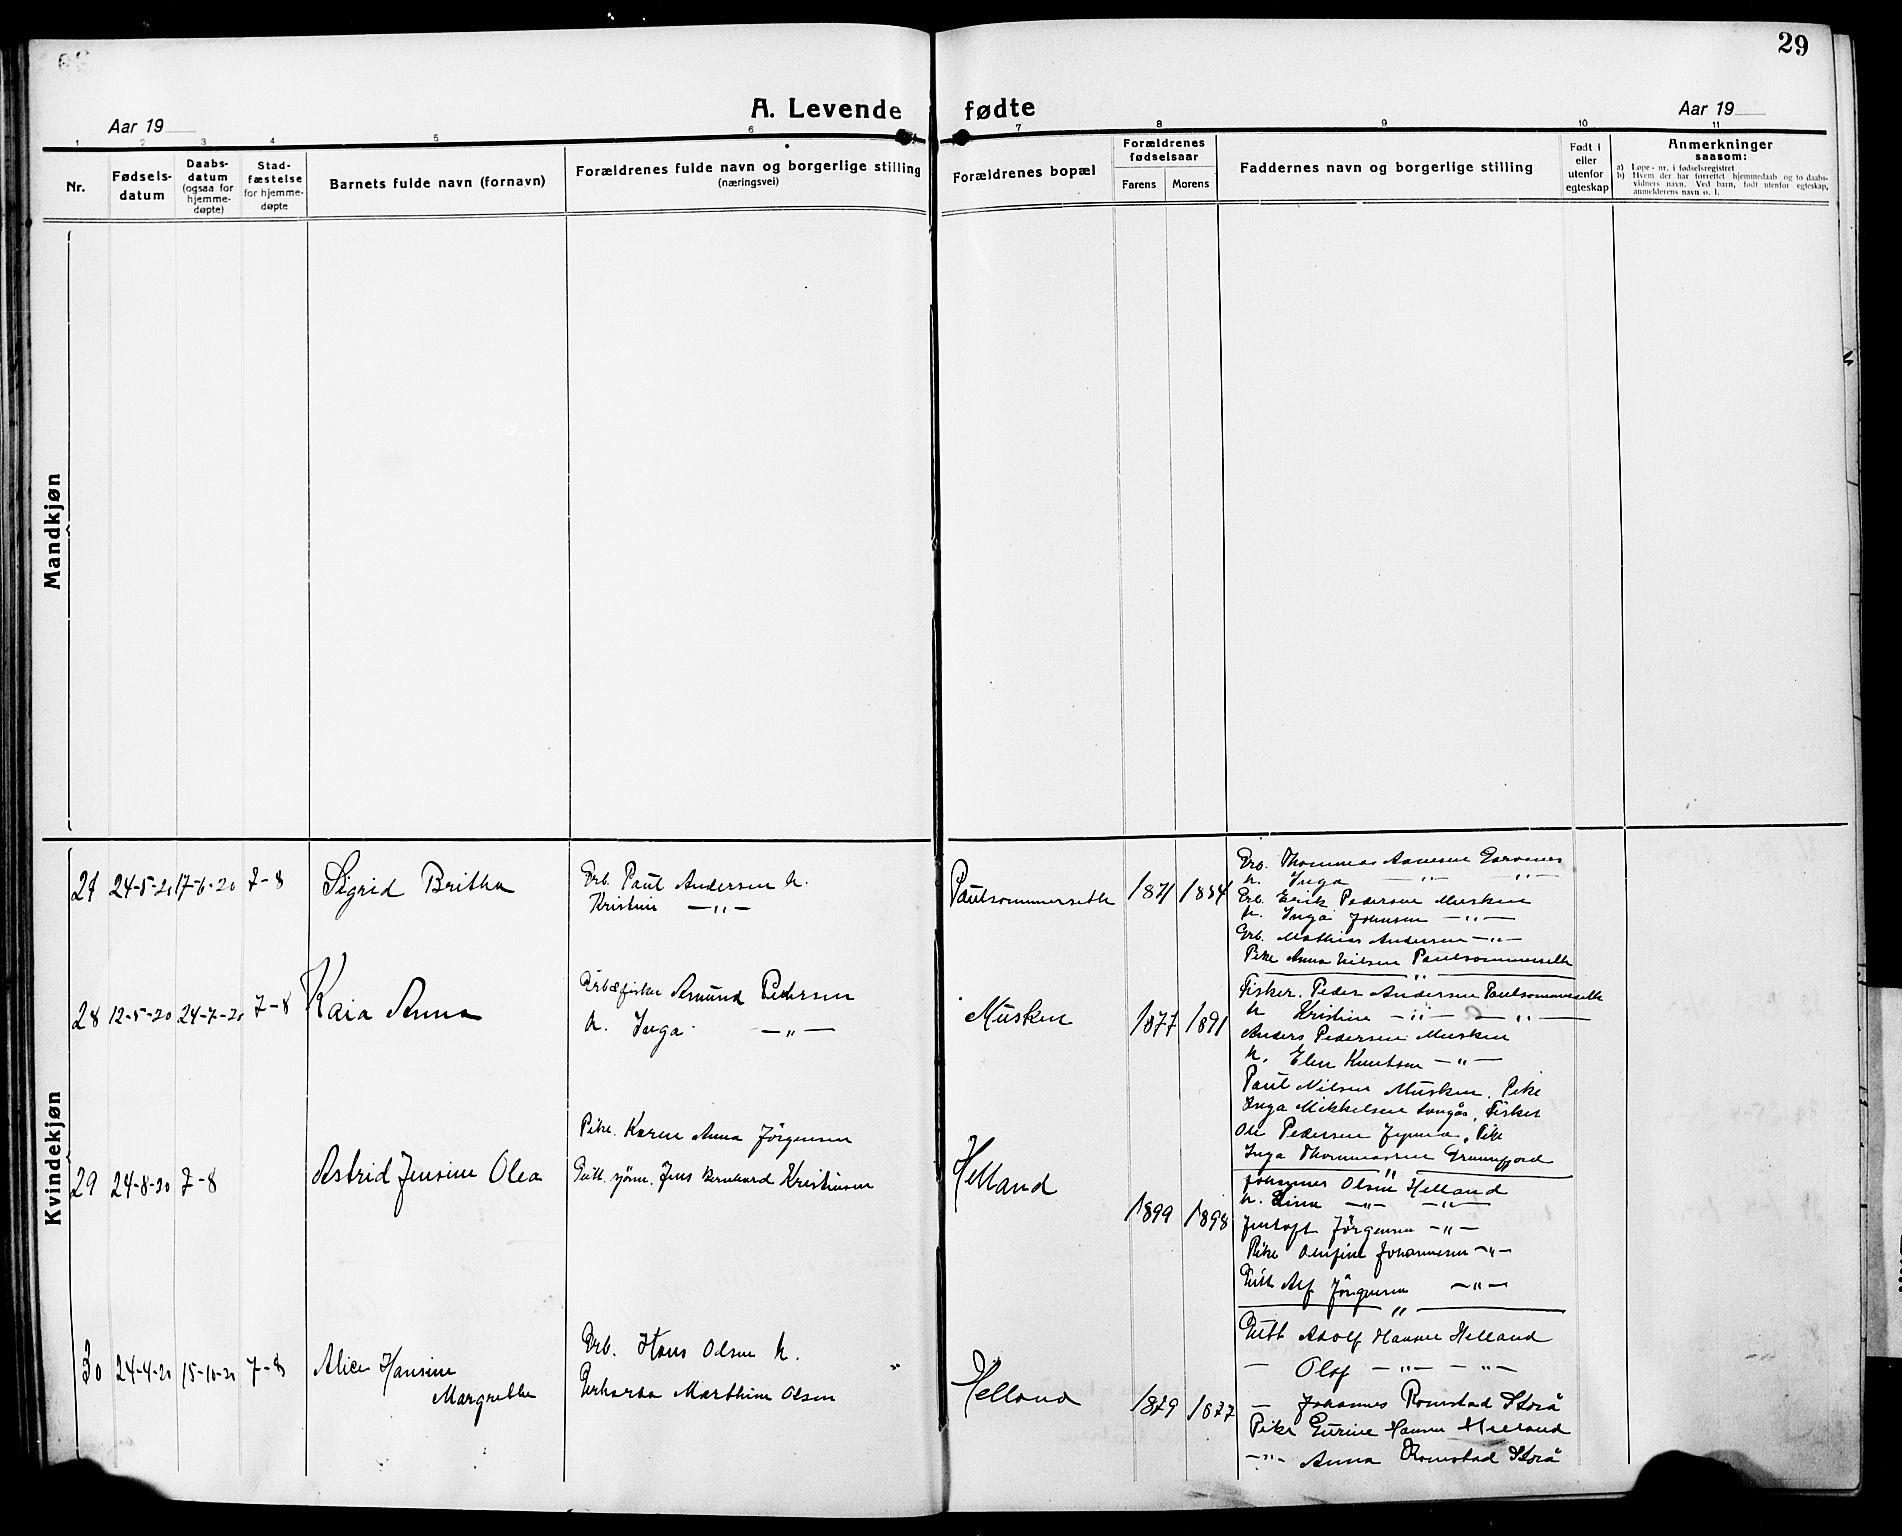 29
A. Levende fødte
Aar 19
Aar 19
1 2 3 4 5 6 7 8 9 10 11
Nr.
Fødsels-
datum
Daabs-
datum
(ogsaa for
hjemme-
døpte)
Stad-
fæstelse
for hjemme-
døpte
Barnets fulde navn (fornavn)
Forældrenes fulde navn og borgerlige stilling
(næringsvei)
Forældrenes bopæl
Forældrenes
fødselsaar
Farens Morens
Faddernes navn og borgerlige stilling
Født i
eller
utenfor
egteskap
Anmerkninger
saasom:
a) Løpe-nr. i fødselsregistret
b) Hvem der har forrettet hjemmedaab og to daabs-
vidners navn. Ved barn, født utenfor egteskap,
anmelderens navn o. l.
Mandkjøn
Kvindekjøn
27 24-5-20 17-6-20 7-8
Sigrid Britha
Arb. Paul Andersen h.
Kristine —"—
Paulsommerseth
1871
Arb. Thommas
h. Inga —"— —"—
Arb. Erik Pedersen Musken
h. Inga Johnsen —"—
Arb. Mathias Andersen —"—
Pike Anna Nilsen Paulsommerseth
28 12-5-20 24-7-20 7-8
Kaia Anna
Amund Pedersen
h. Inga —"—
Musken
1877 1891
Fisker. Peder Andersen Paulsommerseth
h Kristine —"— —"—
Anders Pedersen Musken
h. Elen Knutsen —"—
Paul Nilsen Musken. Pike
Inga Mikkelsen Fisker
Ole Pedersen Pike
Inga Thommassen
29 24-8-20 7-8
Astrid Jensine Olea
Pike. Karen Anna Jörgensen
Jens Bernhard Kristiansen
Helland
1899 1898
Johannes Olsen Helland
h. Lina —"— —"—
Jentoft Jörgensen —"—
Pike Olufine Johannesen —"—
Gutt Alf Jörgensen —"—
30 24-4-20 15-10-20 7-8
Alice Hansine
Margrethe
Arb. Hans Olsen h.
Gerharda Marthine Olsen
Helland
1879 1877
Gutt Adolf Hansen Helland
— Olaf —"— —"—
— Johannes Romstad Storå
Pike Gurine Hansen Helland
—"— Anna Romstad Storå